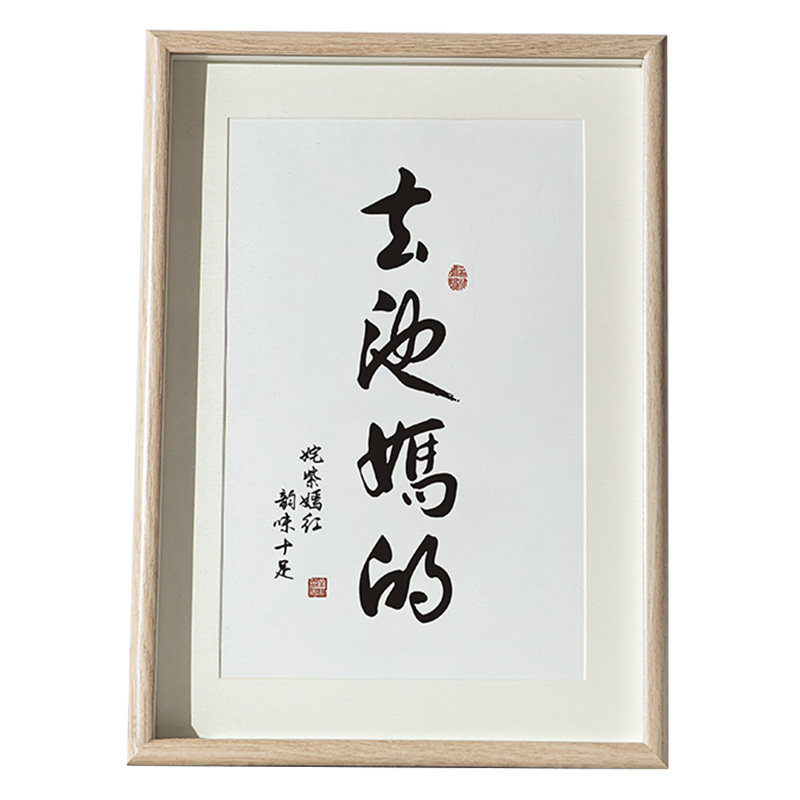 去池媽的
姹紫嫣红
韵味十足